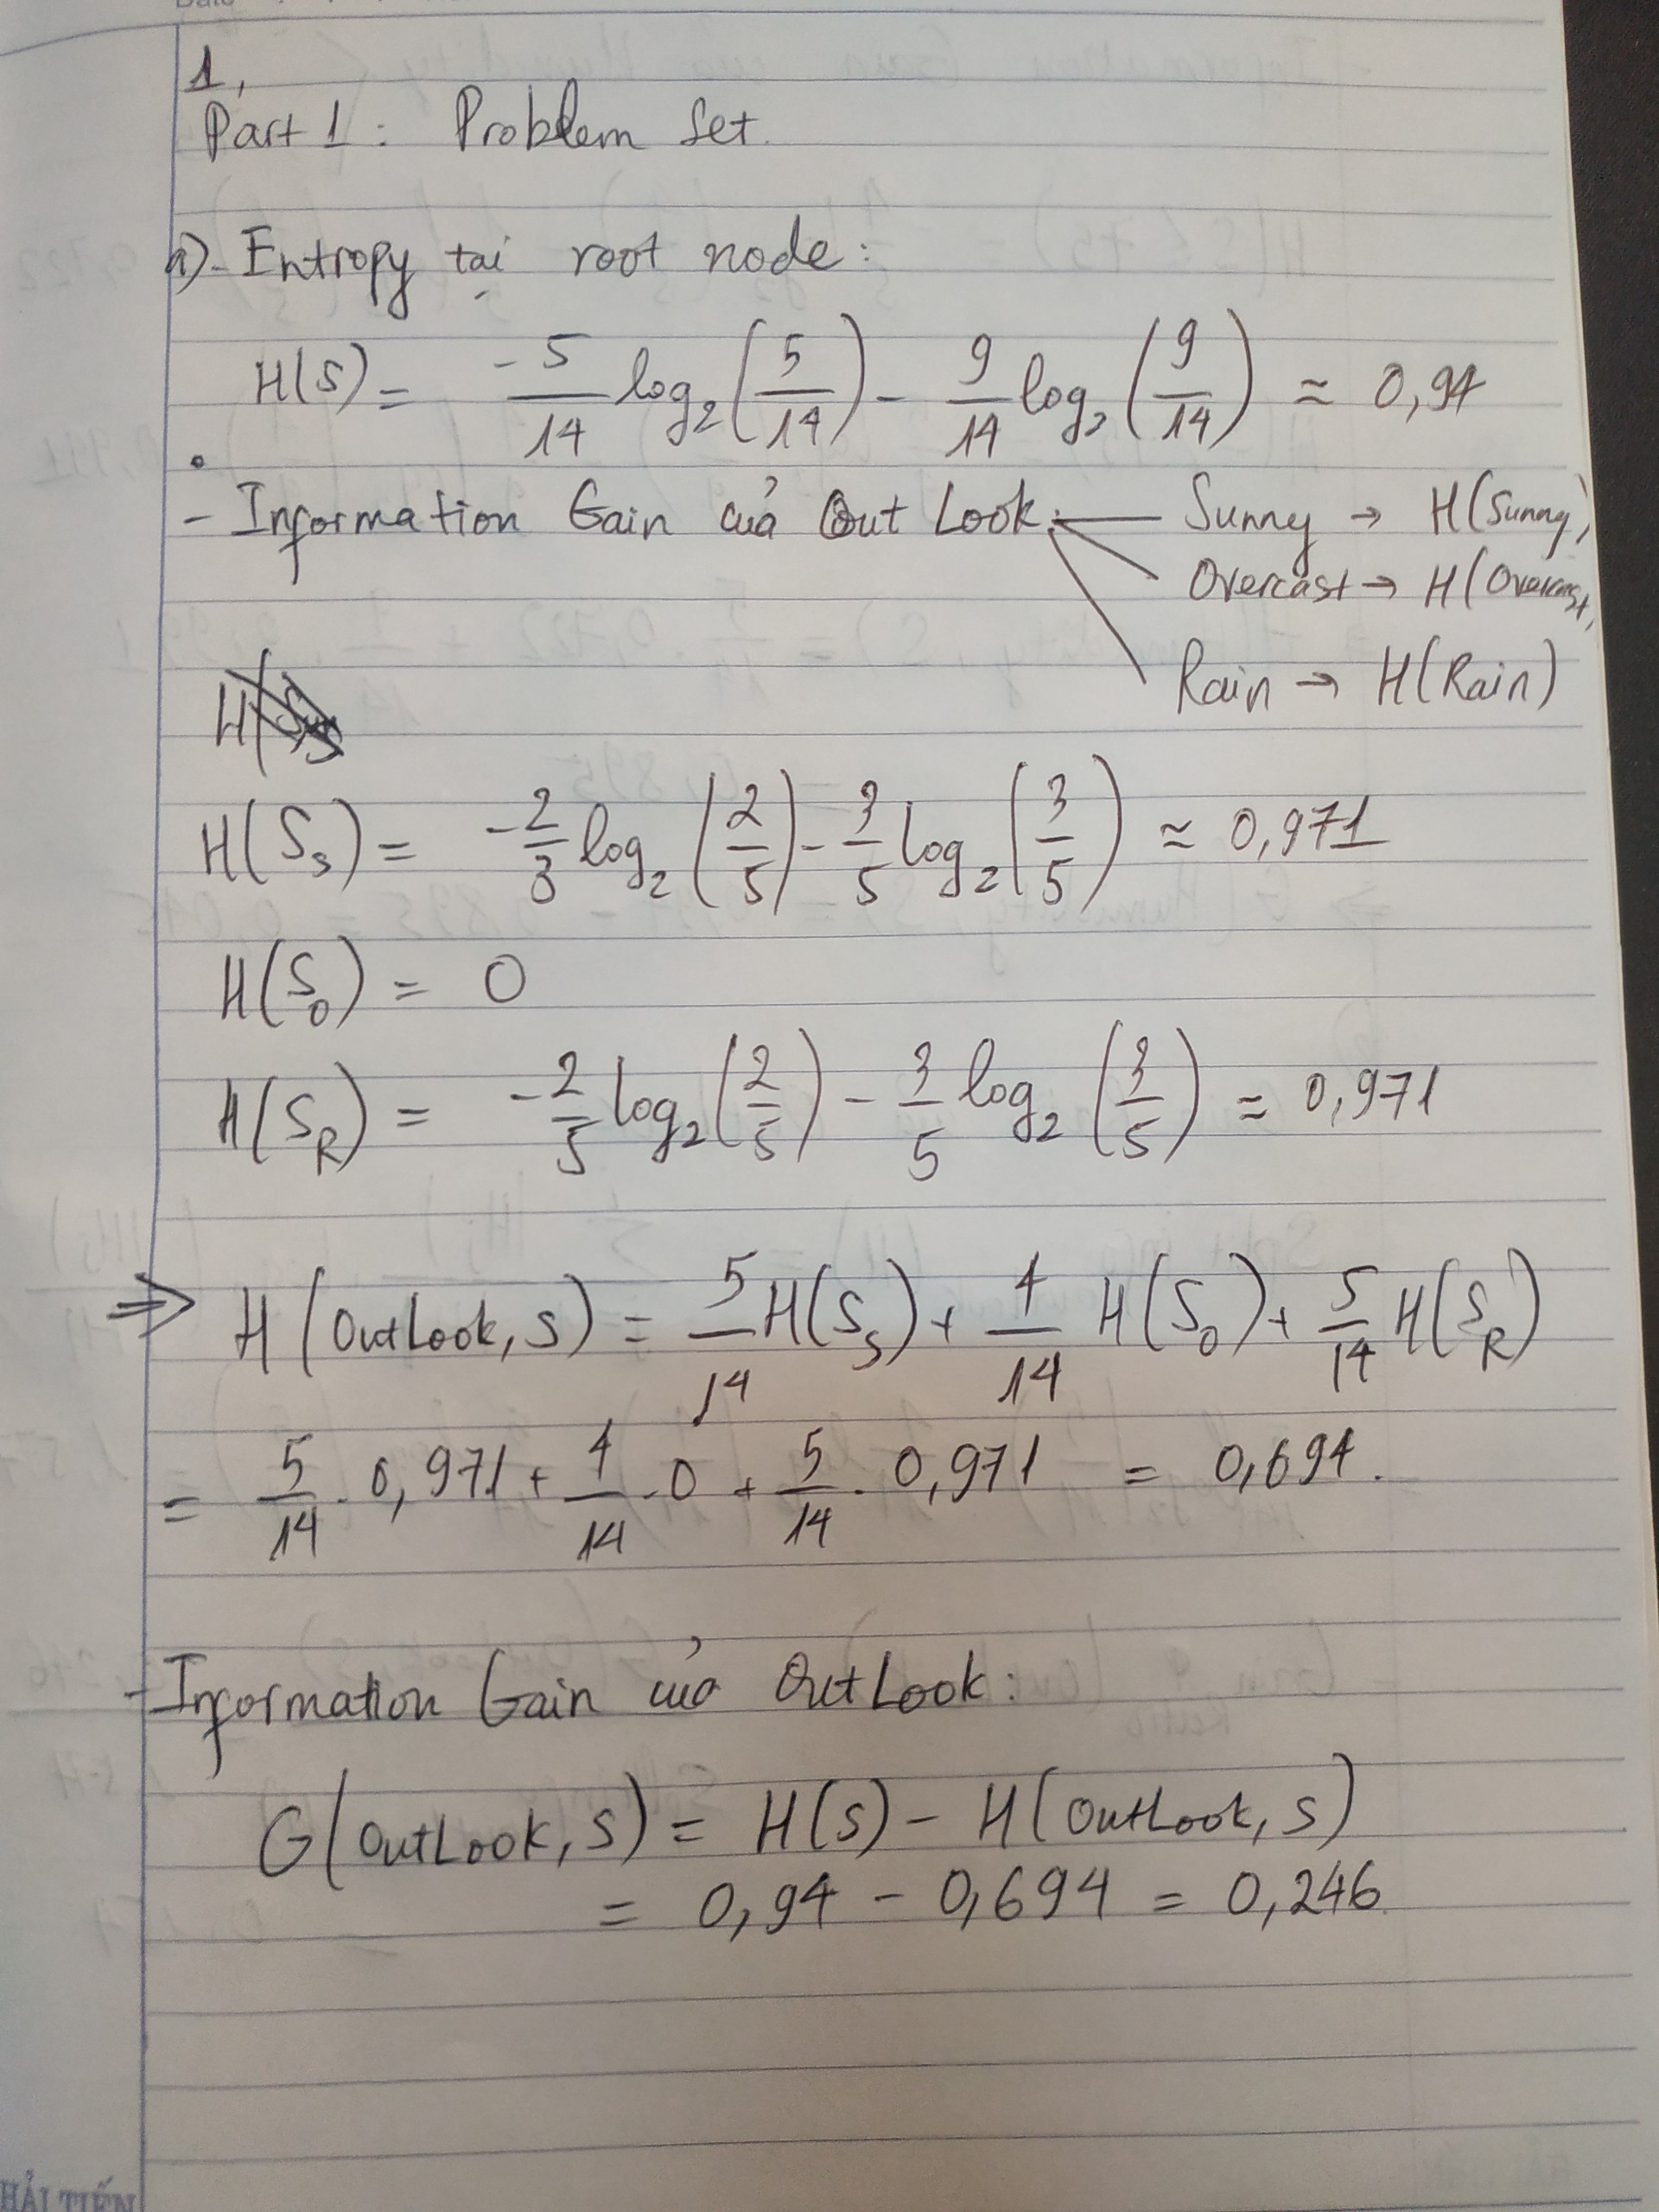 1,
Part 1 : Problem Set.
a) - Entropy tại root node :
H(S) = -5/14 log₂(5/14) - 9/14 log₂(9/14) ≈ 0,94
- Information Gain của OutLook: Sunny → H(Sunny)
Overcast → H(Overcast)
Rain → H(Rain)
H(S_S) = -2/3 log₂(2/5) - 3/5 log₂(3/5) ≈ 0,971
H(S_O) = 0
H(S_R) = -2/5 log₂(2/5) - 3/5 log₂(3/5) ≈ 0,971
⇒ H(OutLook, S) = 5/14 H(S_S) + 4/14 H(S_O) + 5/14 H(S_R)
= 5/14 . 0,971 + 4/14 . 0 + 5/14 . 0,971 = 0,694.
- Information Gain của OutLook :
G(OutLook, S) = H(S) - H(OutLook, S)
= 0,94 - 0,694 = 0,246
HẢI TIẾN